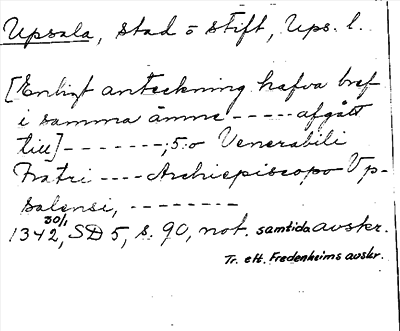 Upsala, stad o stift, Ups. l.
[Enligt anteckning hafva bref
i samma ämne ----- afgått
till] -------; 5:o Venerabili
Fratri ---- Archiepiscopo Vp-
salensi, --------
30/1
1342, SD 5, s. 90, not. samtida avskr.
Tr. e tt. Fredenheims avskr.